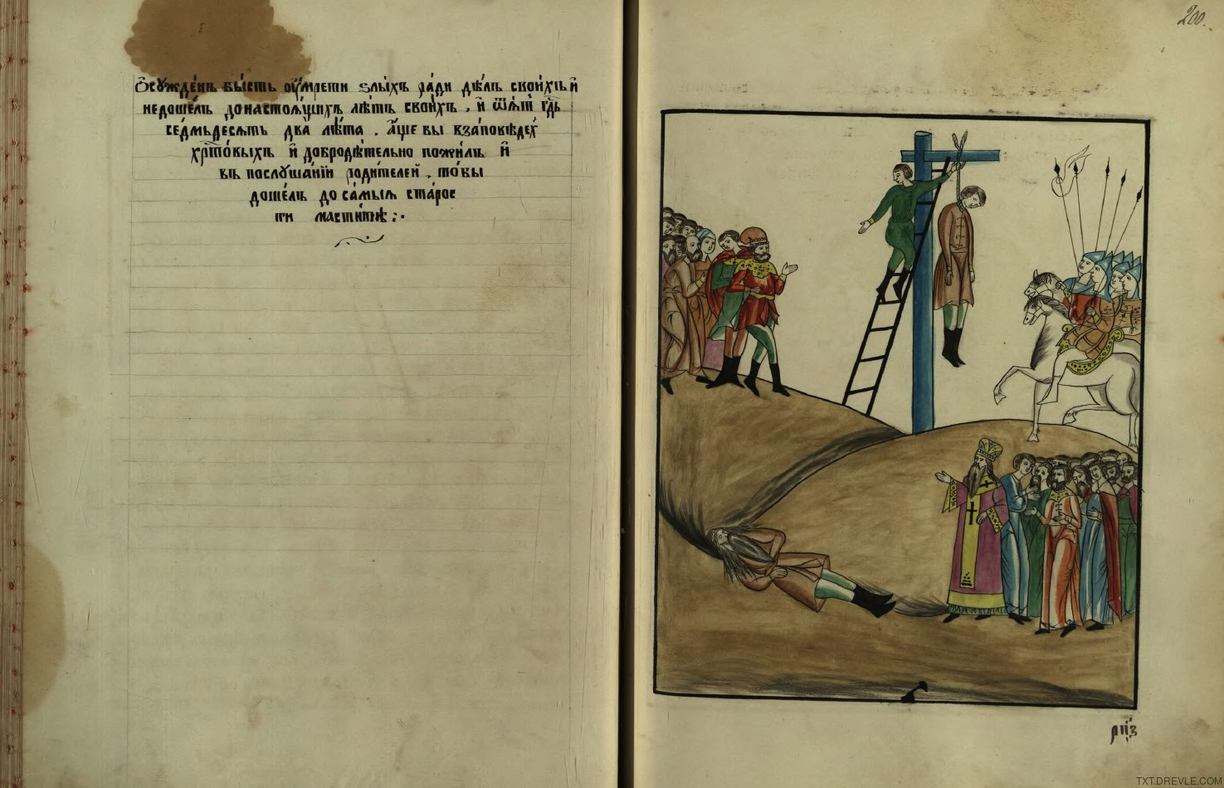 Ѻсꙋжде́нъ бы́сть оу҆мрети ѕлы́хъ ра́ди дѣ́лъ свои́хъ и҆
недоше́лъ донастоѧ́щихъ лѣ́тъ свои́хъ . и҆ ѿѧ́т гд҇ь
се́дмьдесѧть два лѣ́та . а҆́ще бы взаповѣдех
хрⷭ҇то́выхъ и҆ добродѣ́тельно пожи́лъ и҆
въ послꙋша́нїи роди́телей . то́бы
доше́лъ до са́мыѧ ста́рос
ти масти́тыѧ ; ·
200.
рп҃з
TXT.DREVLE.COM